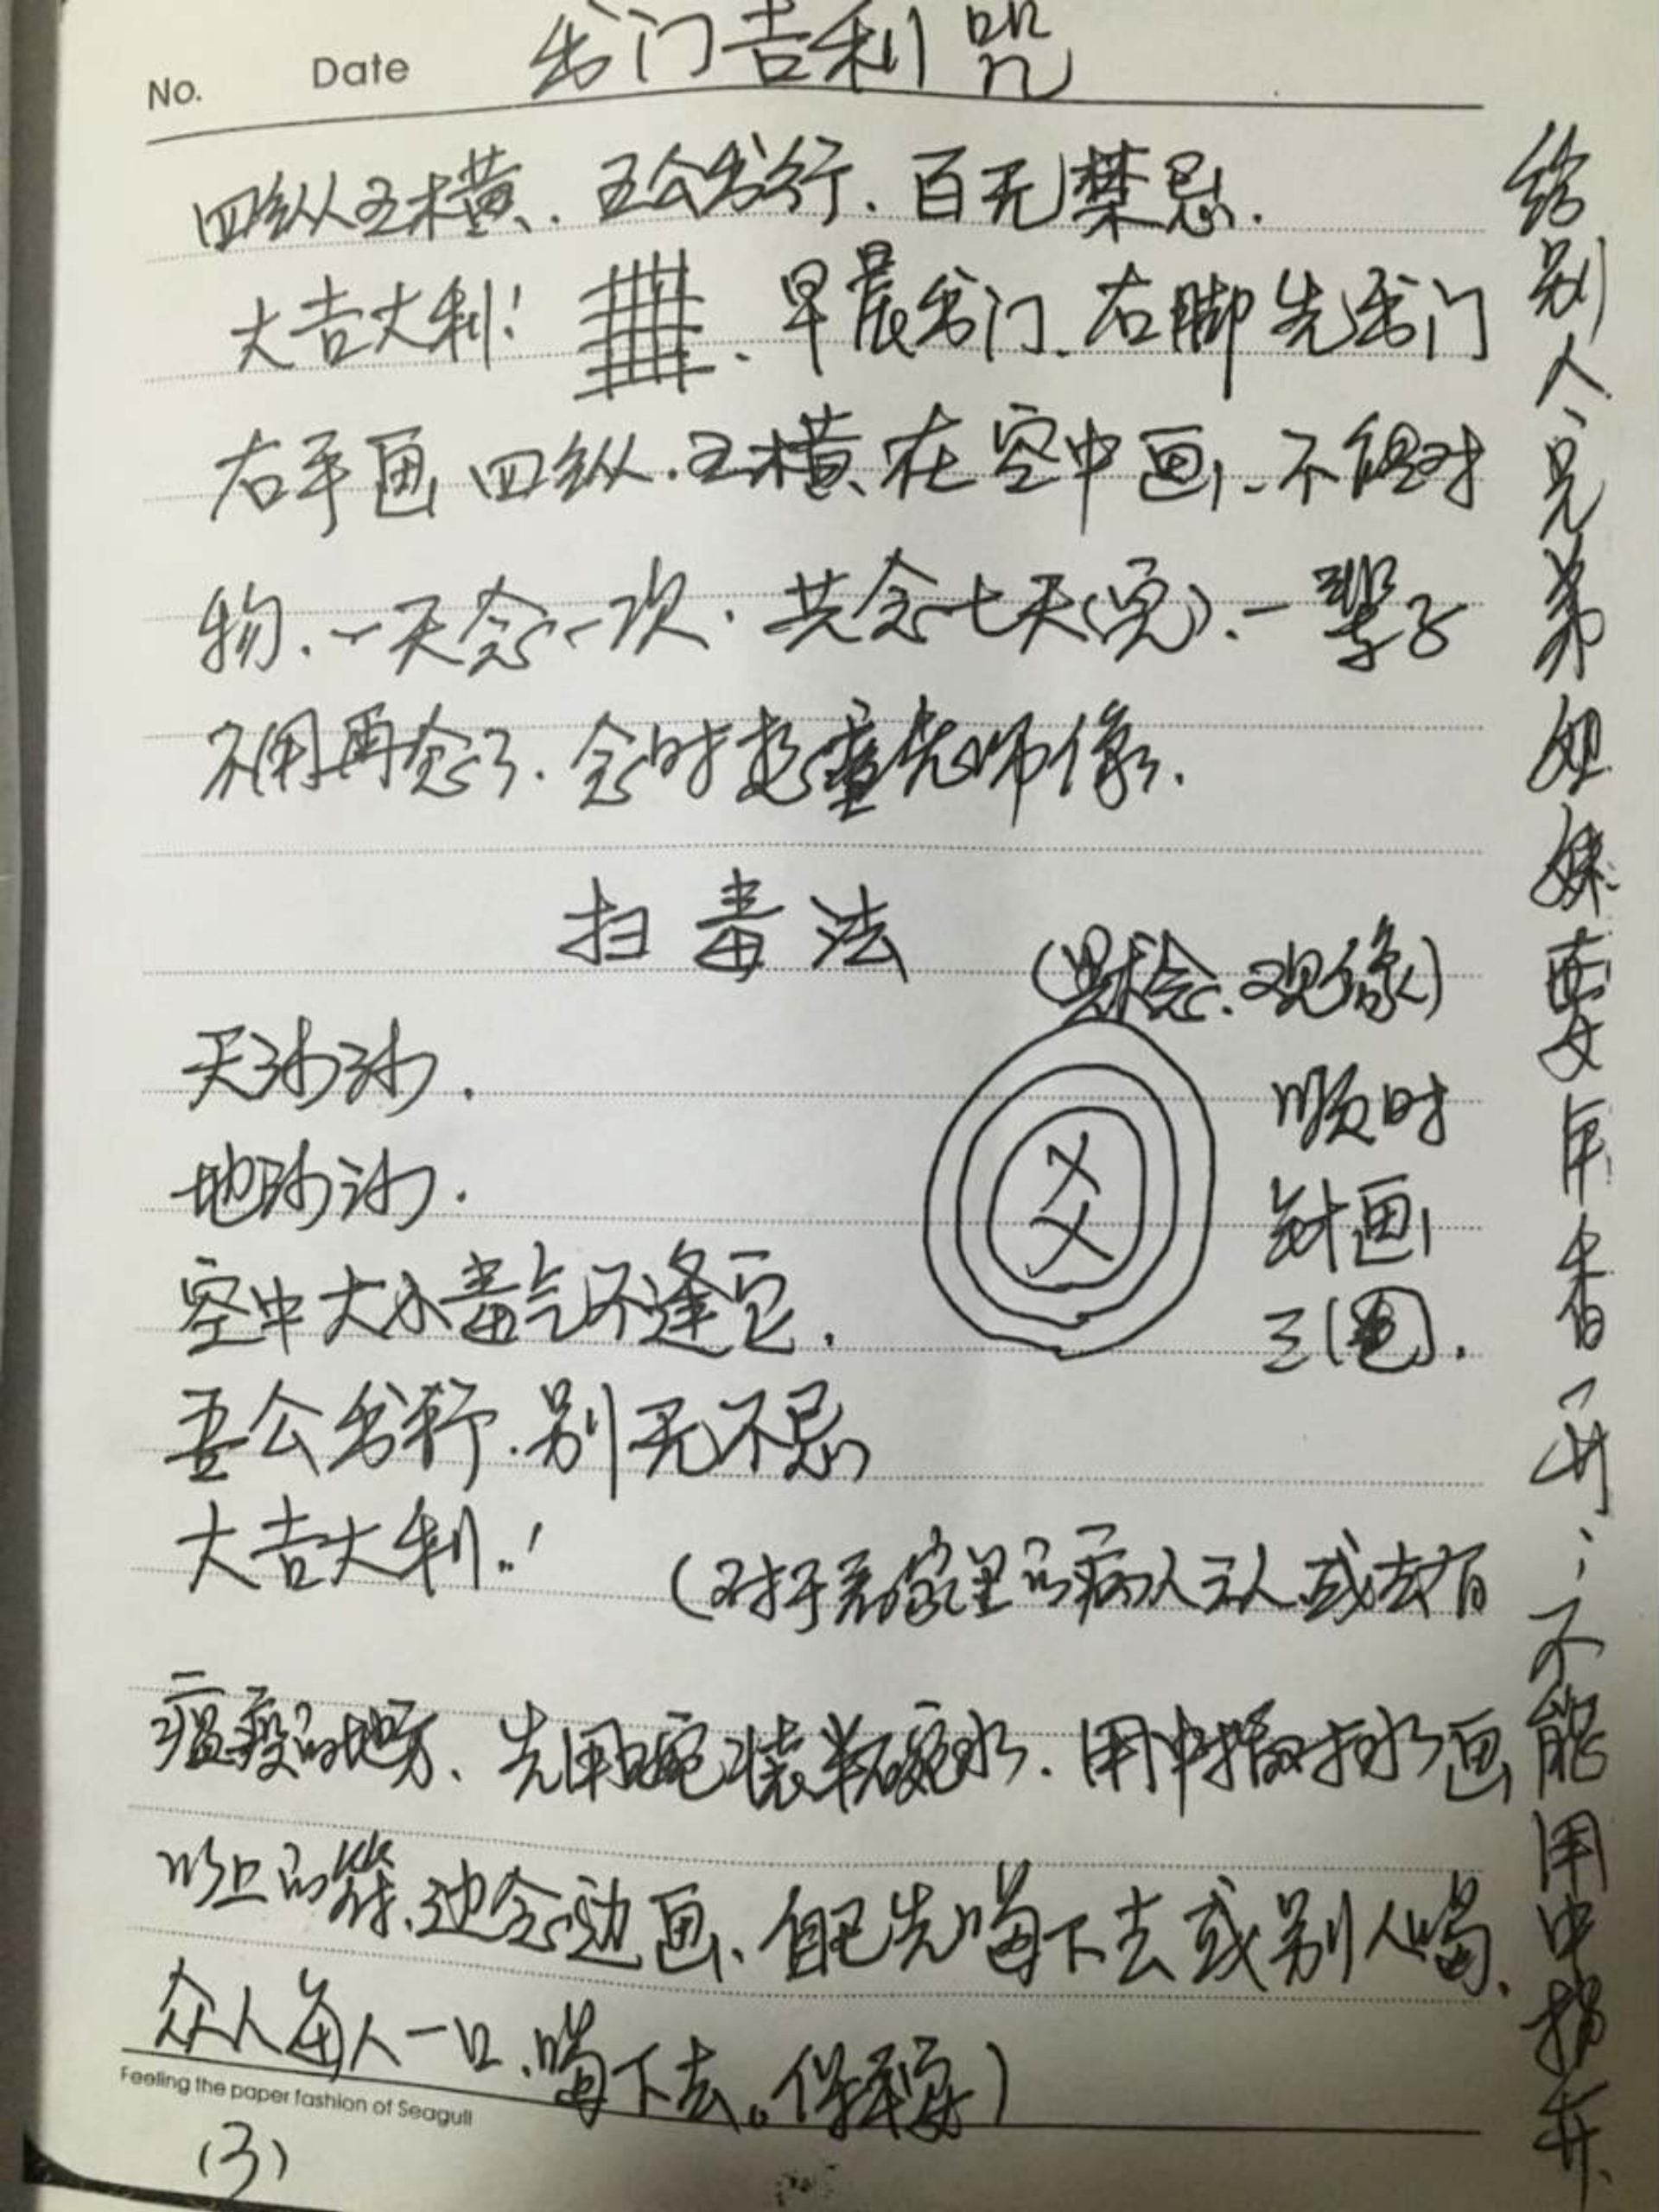 No. Date 出门吉利咒
四纵五横、五公出行、百无禁忌.
大吉大利! 早晨出门、右脚先出门
右手画四纵.五横、在空中画、不能对
物、一天念一次.共念七天(完).一辈子
不用再念了.念时想童先师像.
扫毒法
(默念.观像)
天
地
空中大小毒气不逢它.
吾公出行.别无不忌
大吉大利.!
父
顺时
针画
三(圈).
(对于看家里的病人 人或去有
瘟疫的地方、先用碗装半碗水.用中指对水画
以上的符、边念边画、自己先喝下去或别人喝、
众人每人一口、喝下去。保平安)
Feeling the paper fashion of Seagull
(3)
给别人、兄弟姐妹要用香开;不能用中指开.